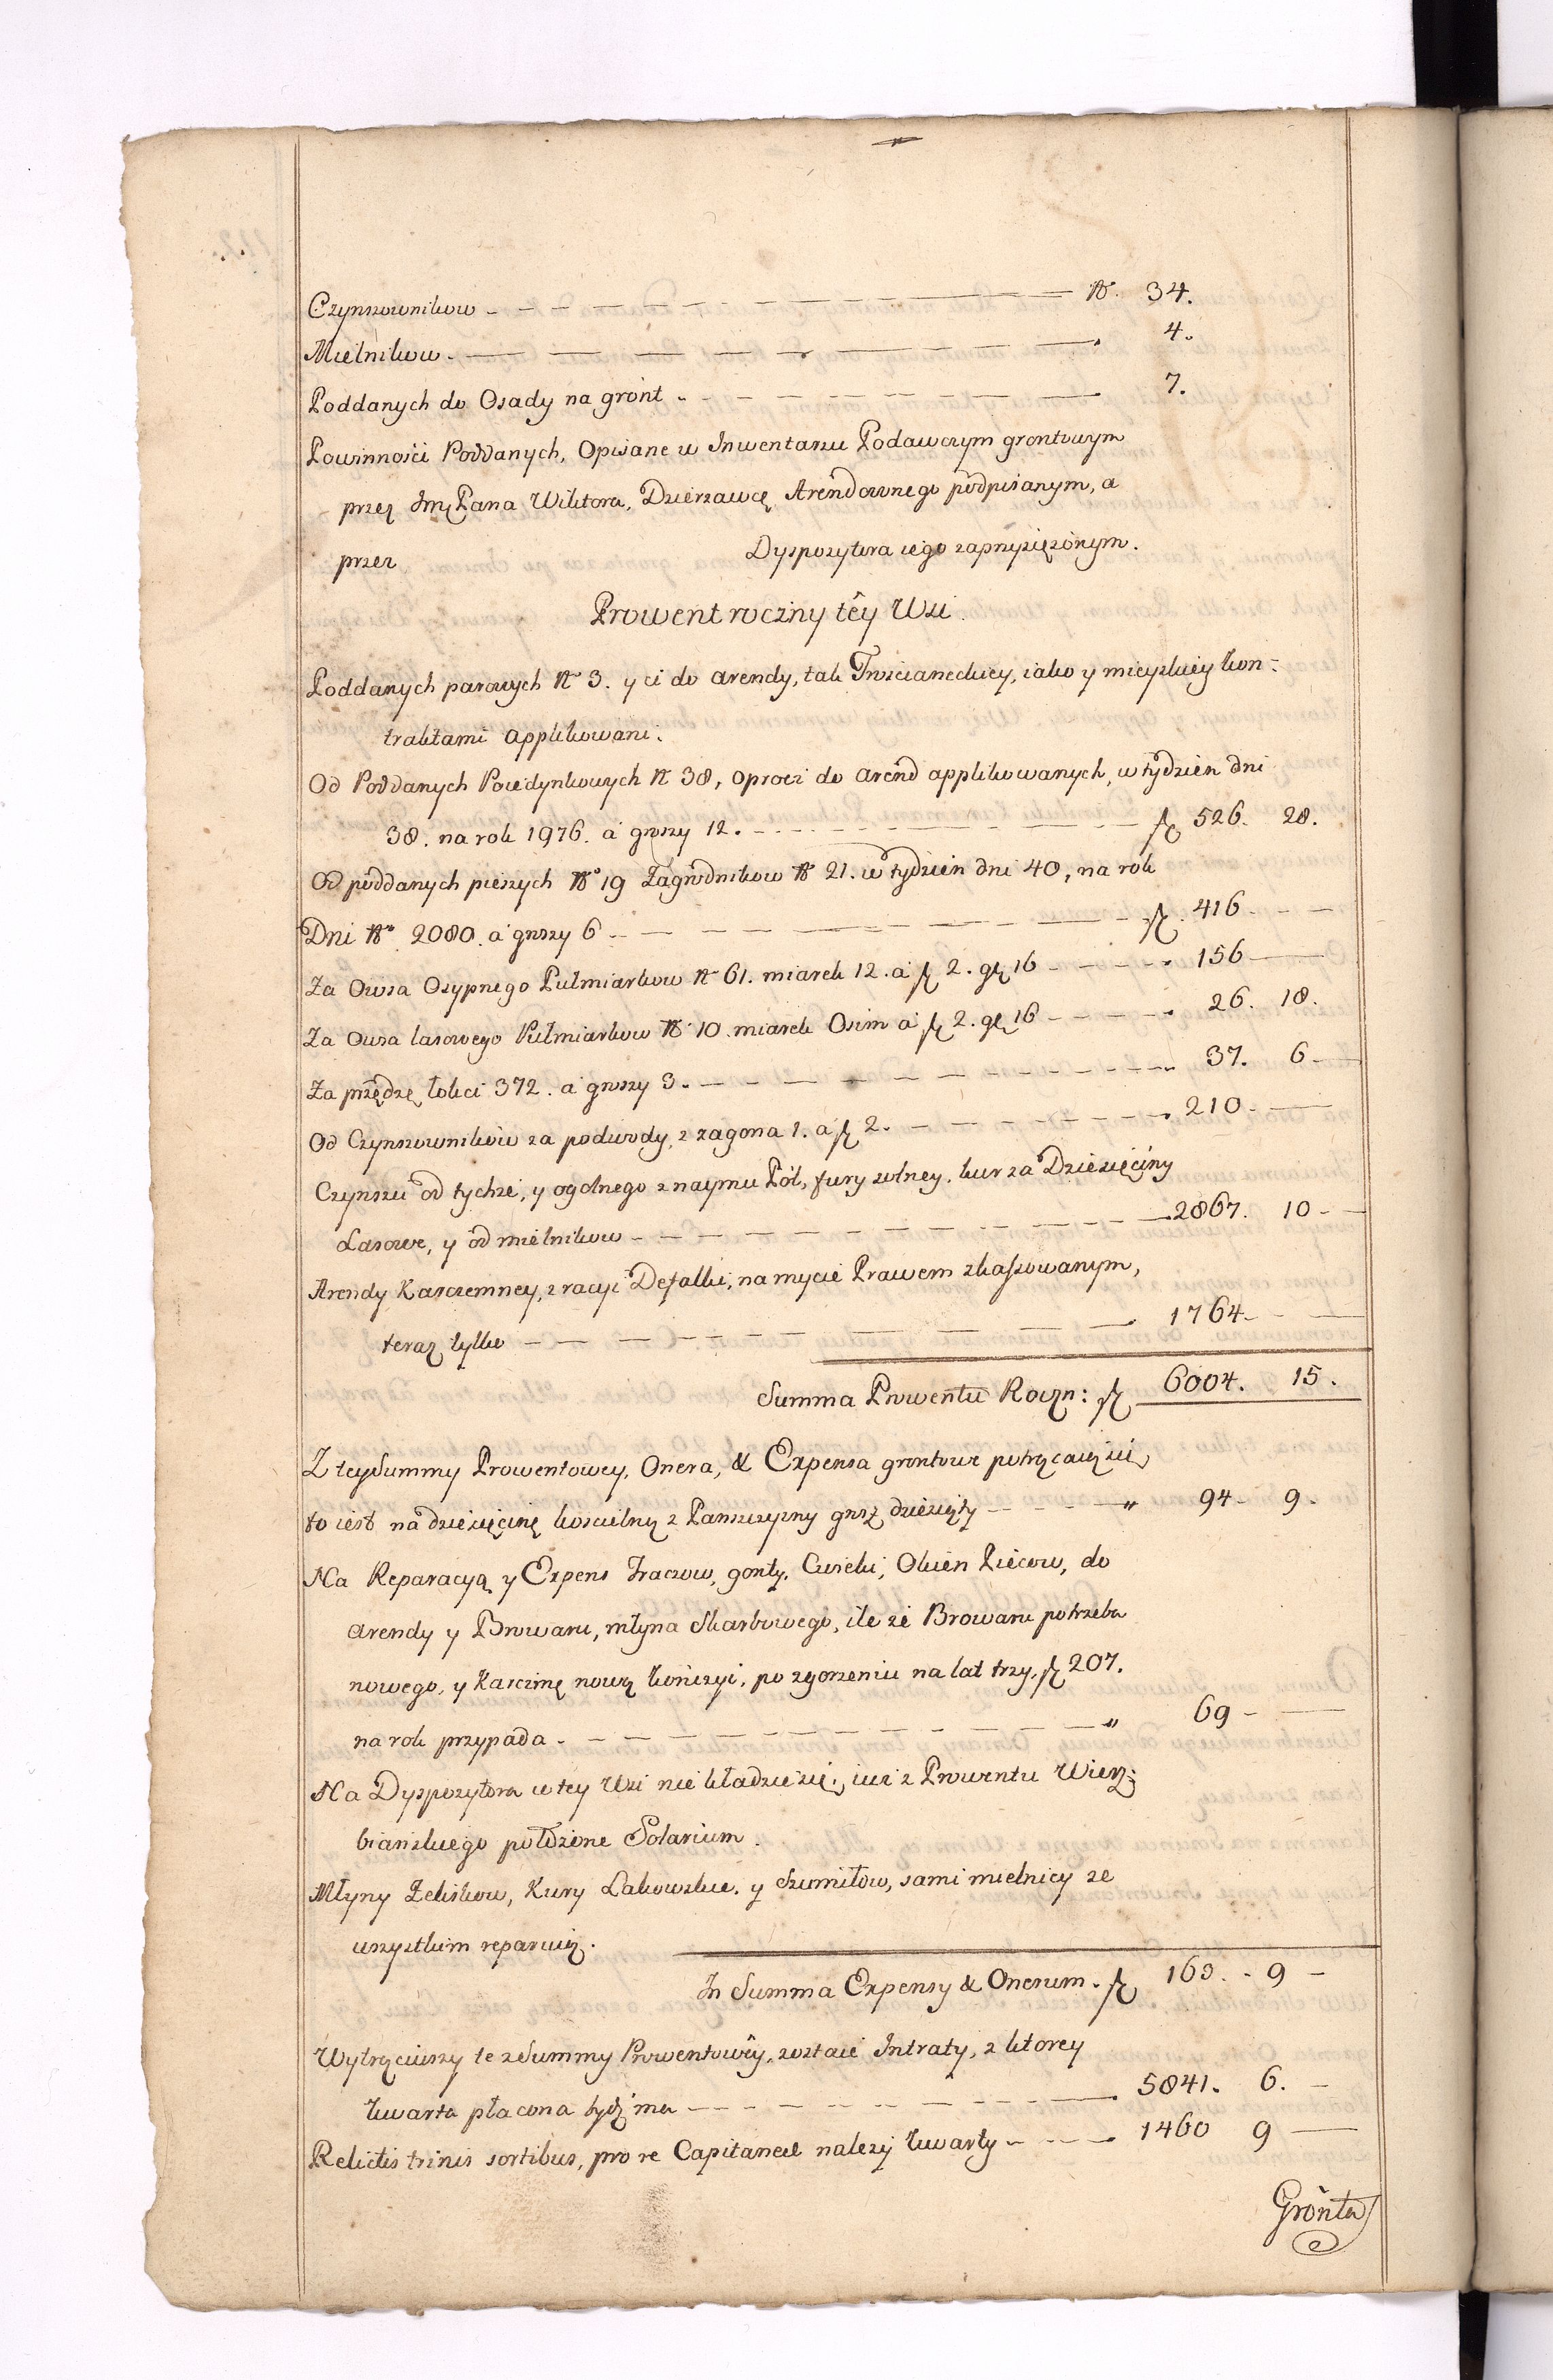 Czynszownikow - - - - - - - - N. 34.
Mielnikow - - - - - - - - 4.
Poddanych do Osady na gront - - - - - - - 7.
Powinnosci Poddanych, Opisane w Inwentarzu Podawczym grontowym
przez Pana Wiktora, Dzierzawcę Arendownego podpisanym, a
przez Dyspozytora iego zaprzysięzonym.
Prowent roczny tey Wsi
Poddanych parowych N 3. y ci do arendy, tak Trzcianeckiey, iako y mieyskiey kon-
traktami applikowani.
Od Poddanych Poiedynkowych N 38, oprocz do arend applikowanych, w tydzien dni
38. na rok 1976. a groszy 12. - - - - - - - fl 526. 28.
Od poddanych pieszych No 19 Zagrodnikow N 21. w tydzien dni 40, na rok
Dni No 2080. a groszy 6 - - - - - - - fl. 416 - - -
Za Owsa Osypnego Pułmiarkow N 61. miarek 12. a fl 2. gr 16 - - - - - 156 —
Za Owsa lasowego Pułmiarkow N 10. miarek Osim a fl 2. gr 16 - - - - - 26. 18.
Za przędzę łokci 372. a groszy 3. - - - - - - - 37. 6 -
Od Czynszownikow za podwody, z zagona 1. a fl 2. - - - - - - 210 - —
Czynszu od tychze, y ogolnego z naymu Pól, fury solney, kur za Dziesięciny
Lasowe, y od mielnikow - - - - - - - - 2867. 10 - -
Arendy Karczemney, z racyi Defalki, na mycie Prawem zkassowanym,
teraz tylko - - - - - - - - 1764 - —
Summa Prowentu Roczn: fl 6004. 15.
Z tey Summy Prowentowey, Onera, & Expensa grontowe potrącaią się,
to iest na dziesięcinę koscielną z Panszczyzny grosz dziesiąty - - - - " 94 - 9 -
Na Reparacyą y Expens Traczow, gonty, Cwieki, Okien Piecow, do
arendy y Browaru, młyna Skarbowego, ile ze Browaru potrzeba
nowego, y Karczmę nową kończyć, po zgorzeniu na lat trzy, fl 207.
na rok przypada - - - - - - - - " 69 - —
Na Dyspozytora w tey Wsi nie kładzie się, iuz z Prowentu Wierz-
bianskiego położone Solarium.
Młyny Zelisków, Kury Lakowskie, y Szumiłow, sami mielnicy ze
wszystkim reparuią.
In Summa Expensy & Onerum. fl 163. - 9 -
Wytrąciwszy te z Summy Prowentowey, zostaie Intraty, z ktorey
kwarta płacona bydz ma - - - - - - - 5841. 6. -
Relictis trinis sortibus, pro re Capitaneali nalezy kwarty - - - - 1460 9 —
Gronta